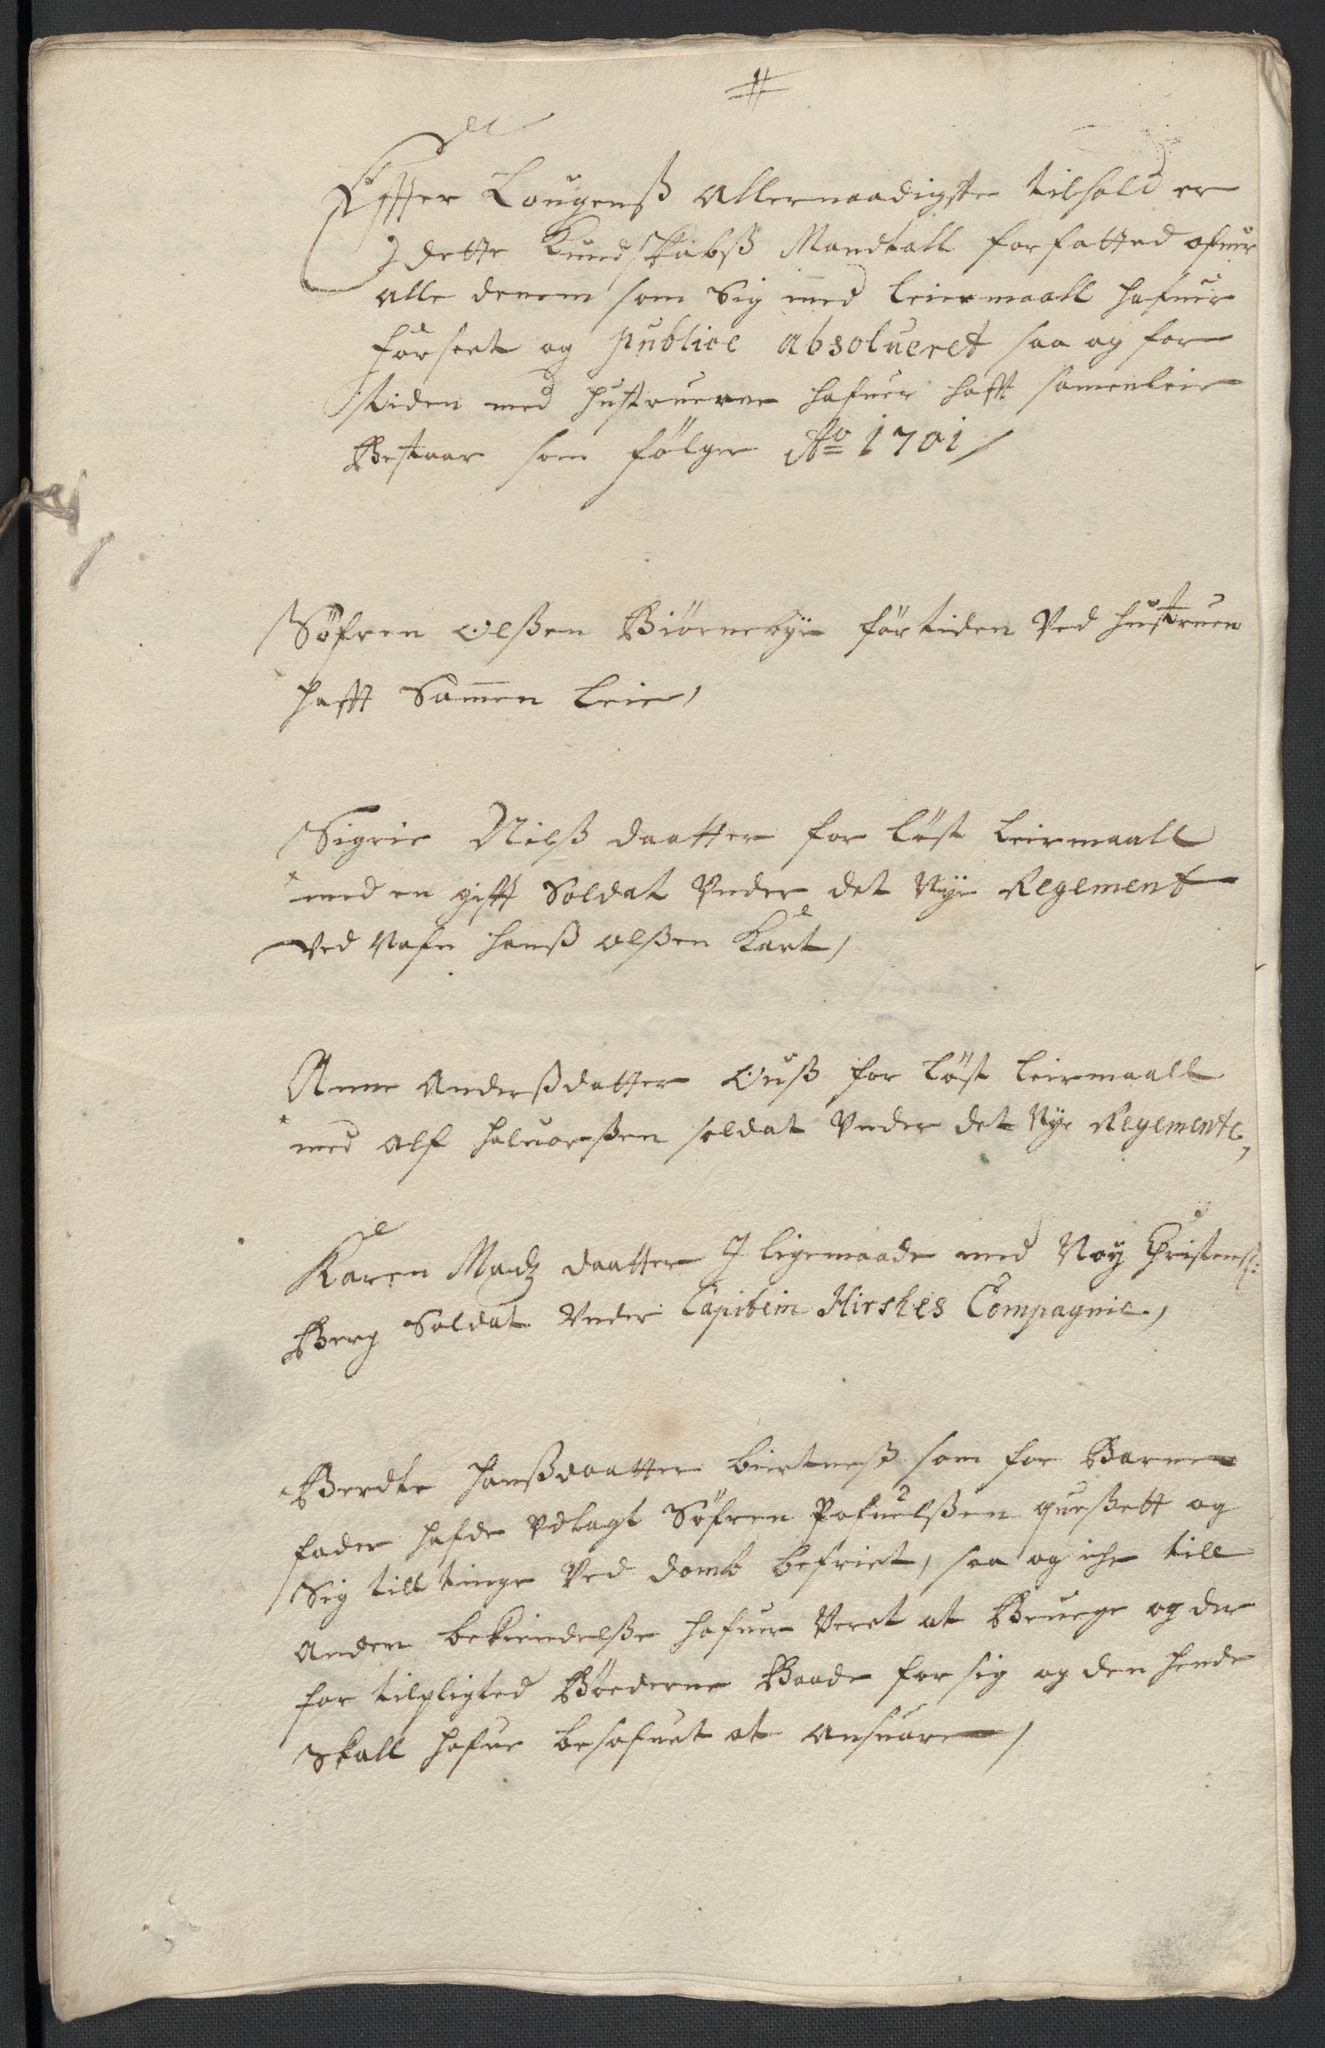 Effter Lougenß Allernaadigste tilhold er
dette Kundskabß Mandtall forfatted ofuer
alle denem som Sig med leiermaall hafuer
forseet og publice absolueret saa og for
tiden med hustruerne hafuer hafft samenleie
Bestaar som følger Ao 1701/
Søfren Olßen Biørnebye førtiden Ved hustruen
hafft Sammen leie,
Sigrie Nilß daatter for løst leiermaall
med en gifft Soldat Under det Nye Regement
Ved Nafn Hanß Olßen Kart,
Anne Anderßdatter Ouß for løst leiermaall
med Alf Haluorßen soldat Under det Nye Regemente,
Karen Madz daatter J ligemaade med Roy Christenß:
Berg Soldat Under Capitein Hirshes Compagnie,
Berdte Hanßdaatter som for Barne
fader hafde Udlagt Søfren Pofuelßen queßett og
Sig till tinge Ved domb befriet, saa og iche till
Anden bekiendelße hafuer Veret at Beuege og der
for tilpligted Bøederne Baade for sig og den hende
Skall hafue besofuet at Ansuare,